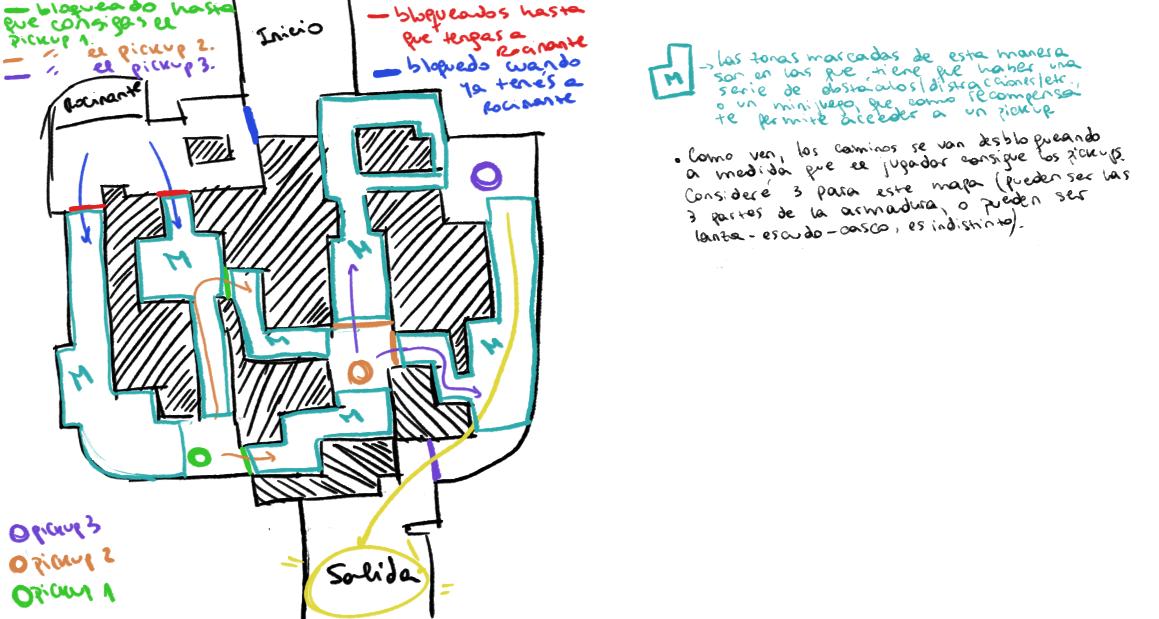 — bloqueado hasta
que consigas el
pickup 1.
— " el pickup 2.
— " el pickup 3.
Inicio
— bloqueados hasta
que tengas a
Rocinante
— bloquedo cuando
ya tenés a
rocinante
Rocinante
M
M
M
M
M
M
M
pickup 3
pickup 2
pickup 1
Salida
M → Las zonas marcadas de esta manera
son en las que tiene que haber una
serie de obstáculos/distracciones/etc.
o un minijuego, que como recompensa
te permite acceder a un pickup
• Como ven, los caminos se van desbloqueando
a medida que el jugador consigue los pickups.
Consideré 3 para este mapa (pueden ser las
3 partes de la armadura, o pueden ser
lanza-escudo-casco, es indistinto).